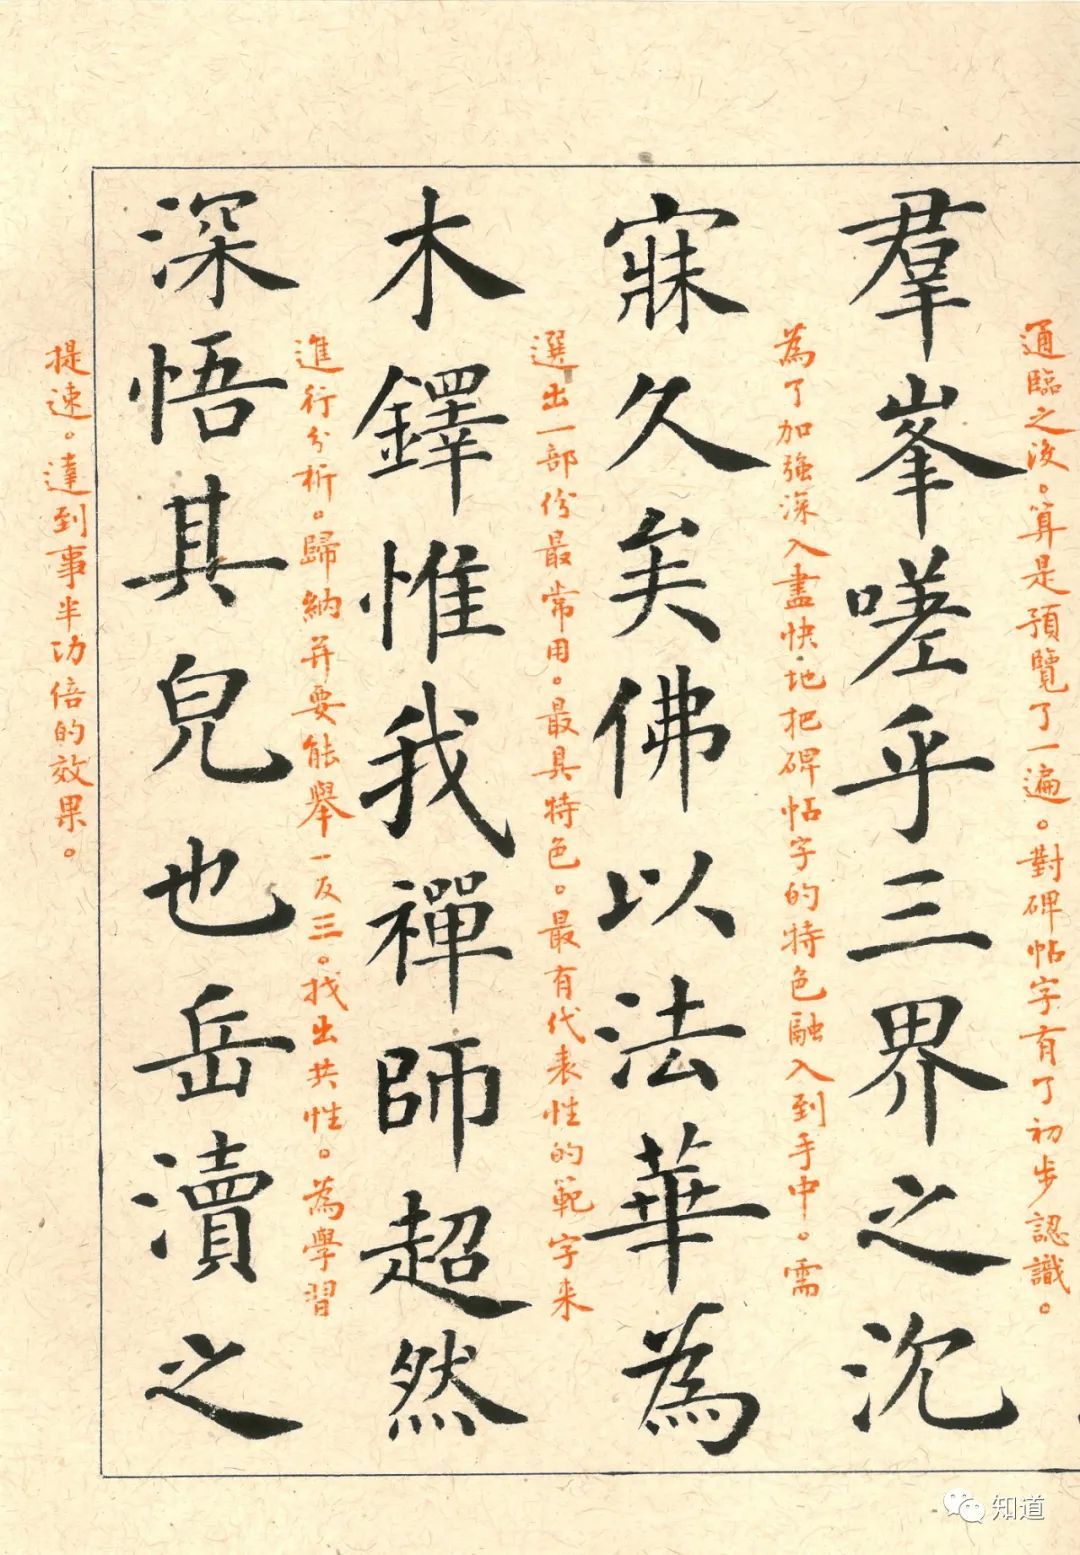 通臨之後。算是預覽了一遍。對碑帖字有了初步認識。
羣峯嗟乎三界之沉
為了加強深入盡快地把碑帖字的特色融入到手中。需
寐久矣佛以法華為
選出一部份最常用。最具特色。最有代表性的範字来
木鐸惟我禪師超然
進行分析。歸納并要能舉一反三。找出共性。為學習
深悟其皃也岳瀆之
提速。達到事半功倍的效果。
知道